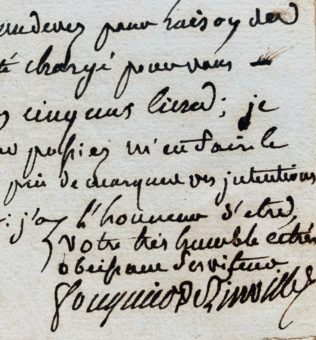 devez pour raison de
té chargé pour vous —
cinq cens livres ; je
papiers m'en faire le
prie de marquer vos jntentions
j'ay l'honneur d'etre,
Votre très humble et très
obeissant Serviteur
Fouquier De Tinville